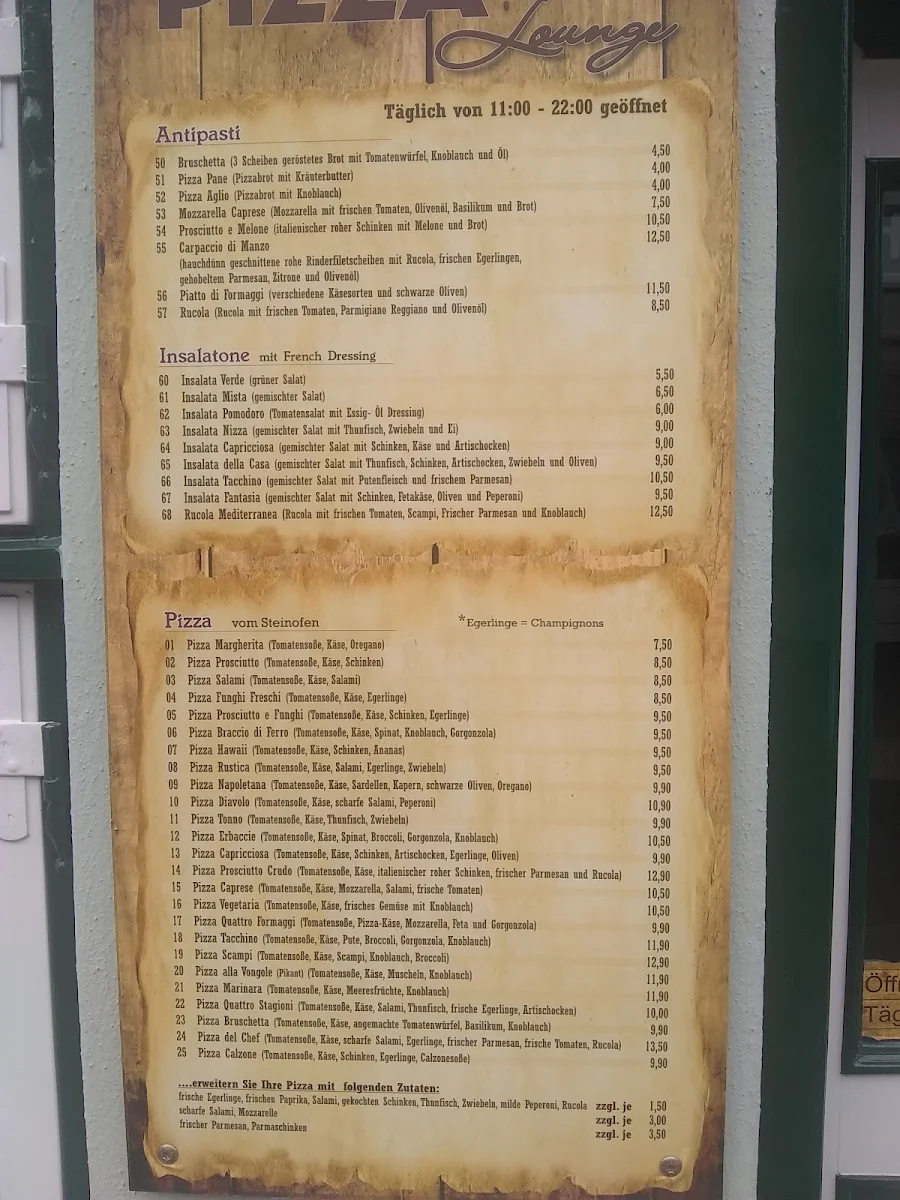 PIZZA
Lounge
Täglich von 11:00 - 22:00 geöffnet
Antipasti
50 Bruschetta (3 Scheiben geröstetes Brot mit Tomatenwürfel, Knoblauch und Öl) 4,50
51 Pizza Pane (Pizzabrot mit Kräuterbutter) 4,00
52 Pizza Aglio (Pizzabrot mit Knoblauch) 4,00
53 Mozzarella Caprese (Mozzarella mit frischen Tomaten, Olivenöl, Basilikum und Brot) 7,50
54 Prosciutto e Melone (italienischer roher Schinken mit Melone und Brot) 10,50
55 Carpaccio di Manzo 12,50
(hauchdünn geschnittene rohe Rinderfiletscheiben mit Rucola, frischen Egerlingen,
gehobeltem Parmesan, Zitrone und Olivenöl)
56 Piatto di Formaggi (verschiedene Käsesorten und schwarze Oliven) 11,50
57 Rucola (Rucola mit frischen Tomaten, Parmigiano Reggiano und Olivenöl) 8,50
Insalatone mit French Dressing
60 Insalata Verde (grüner Salat) 5,50
61 Insalata Mista (gemischter Salat) 6,50
62 Insalata Pomodoro (Tomatensalat mit Essig- Öl Dressing) 6,00
63 Insalata Nizza (gemischter Salat mit Thunfisch, Zwiebeln und Ei) 9,00
64 Insalata Capricciosa (gemischter Salat mit Schinken, Käse und Artischocken) 9,00
65 Insalata della Casa (gemischter Salat mit Thunfisch, Schinken, Artischocken, Zwiebeln und Oliven) 9,50
66 Insalata Tacchino (gemischter Salat mit Putenfleisch und frischem Parmesan) 10,50
67 Insalata Fantasia (gemischter Salat mit Schinken, Fetakäse, Oliven und Peperoni) 9,50
68 Rucola Mediterranea (Rucola mit frischen Tomaten, Scampi, Frischer Parmesan und Knoblauch) 12,50
Pizza vom Steinofen *Egerlinge = Champignons
01 Pizza Margherita (Tomatensoße, Käse, Oregano) 7,50
02 Pizza Prosciutto (Tomatensoße, Käse, Schinken) 8,50
03 Pizza Salami (Tomatensoße, Käse, Salami) 8,50
04 Pizza Funghi Freschi (Tomatensoße, Käse, Egerlinge) 8,50
05 Pizza Prosciutto e Funghi (Tomatensoße, Käse, Schinken, Egerlinge) 9,50
06 Pizza Braccio di Ferro (Tomatensoße, Käse, Spinat, Knoblauch, Gorgonzola) 9,50
07 Pizza Hawaii (Tomatensoße, Käse, Schinken, Ananas) 9,50
08 Pizza Rustica (Tomatensoße, Käse, Salami, Egerlinge, Zwiebeln) 9,50
09 Pizza Napoletana (Tomatensoße, Käse, Sardellen, Kapern, schwarze Oliven, Oregano) 9,90
10 Pizza Diavolo (Tomatensoße, Käse, scharfe Salami, Peperoni) 10,90
11 Pizza Tonno (Tomatensoße, Käse, Thunfisch, Zwiebeln) 9,90
12 Pizza Erbaccie (Tomatensoße, Käse, Spinat, Broccoli, Gorgonzola, Knoblauch) 10,50
13 Pizza Capricciosa (Tomatensoße, Käse, Schinken, Artischocken, Egerlinge, Oliven) 9,90
14 Pizza Prosciutto Crudo (Tomatensoße, Käse, italienischer roher Schinken, frischer Parmesan und Rucola) 12,90
15 Pizza Caprese (Tomatensoße, Käse, Mozzarella, Salami, frische Tomaten) 10,50
16 Pizza Vegetaria (Tomatensoße, Käse, frisches Gemüse mit Knoblauch) 10,50
17 Pizza Quattro Formaggi (Tomatensoße, Pizza-Käse, Mozzarella, Feta und Gorgonzola) 9,90
18 Pizza Tacchino (Tomatensoße, Käse, Pute, Broccoli, Gorgonzola, Knoblauch) 11,90
19 Pizza Scampi (Tomatensoße, Käse, Scampi, Knoblauch, Broccoli) 12,90
20 Pizza alla Vongole (Pikant) (Tomatensoße, Käse, Muscheln, Knoblauch) 11,90
21 Pizza Marinara (Tomatensoße, Käse, Meeresfrüchte, Knoblauch) 11,90
22 Pizza Quattro Stagioni (Tomatensoße, Käse, Salami, Thunfisch, frische Egerlinge, Artischocken) 10,00
23 Pizza Bruschetta (Tomatensoße, Käse, angemachte Tomatenwürfel, Basilikum, Knoblauch) 9,90
24 Pizza del Chef (Tomatensoße, Käse, scharfe Salami, Egerlinge, frischer Parmesan, frische Tomaten, Rucola) 13,50
25 Pizza Calzone (Tomatensoße, Käse, Schinken, Egerlinge, Calzonesoße) 9,90
....erweitern Sie Ihre Pizza mit folgenden Zutaten:
frische Egerlinge, frischen Paprika, Salami, gekochten Schinken, Thunfisch, Zwiebeln, milde Peperoni, Rucola zzgl. je 1,50
scharfe Salami, Mozzarelle zzgl. je 3,00
frischer Parmesan, Parmaschinken zzgl. je 3,50
Öff
Täg